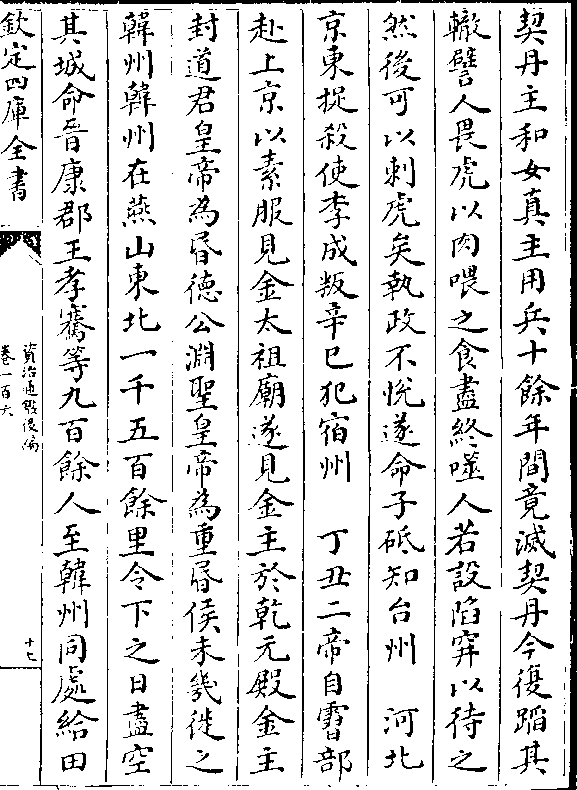 契丹主和女真主用兵十餘年間竟滅契丹今復蹈其
轍譬人畏虎以肉喂之食盡終噬人若設陷穽以待之
然後可以刺虎矣執政不悅遂命子砥知台州　河北
京東捉殺使李成叛辛巳犯宿州　丁丑二帝自霫部
赴上京以素服見金太祖廟遂見金主於乾元殿金主
封道君皇帝為昬德公淵聖皇帝為重昬侯未幾徙之
韓州韓州在燕山東北一千五百餘里令下之日盡空
其城命晉康郡王孝騫等九百餘人至韓州同處給田
欽定四庫全書
資治通鑑後編
卷一百六
十七